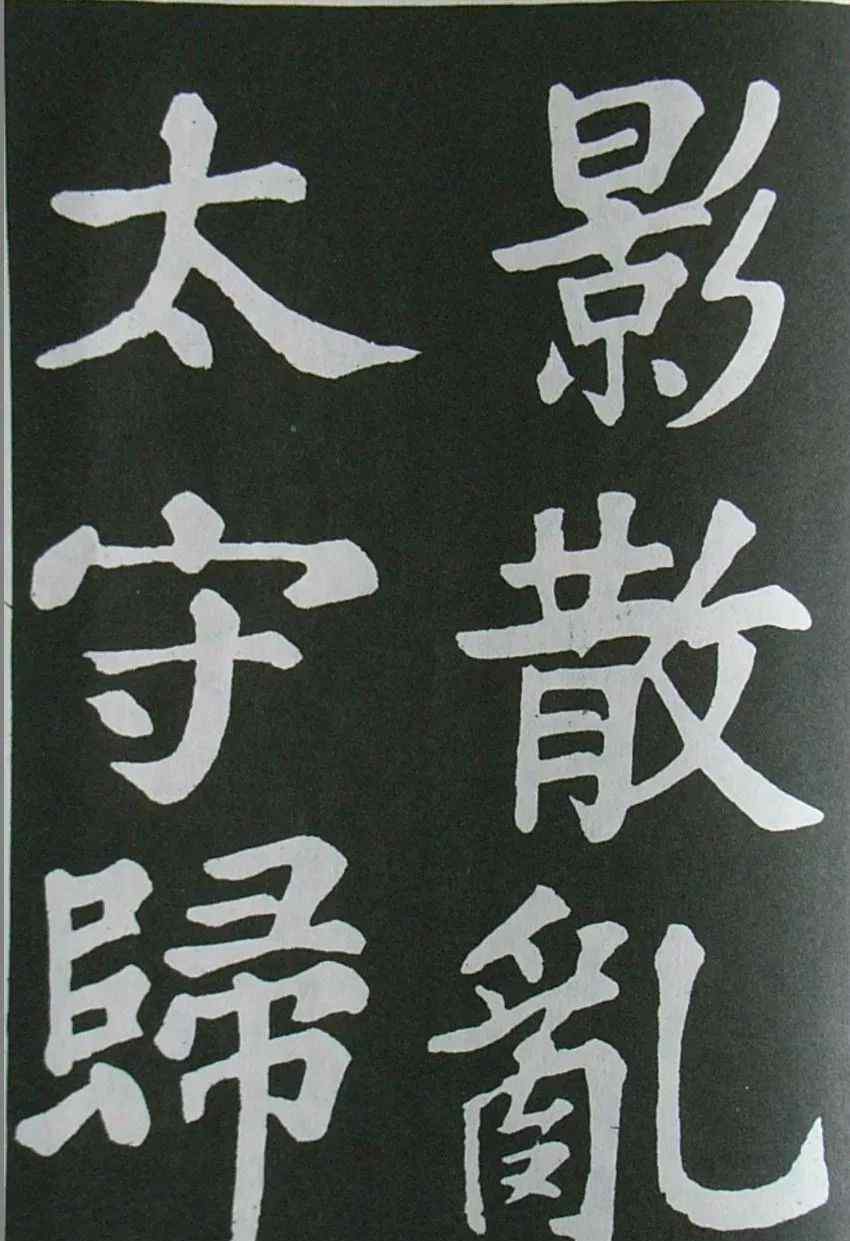 影散亂
太守歸